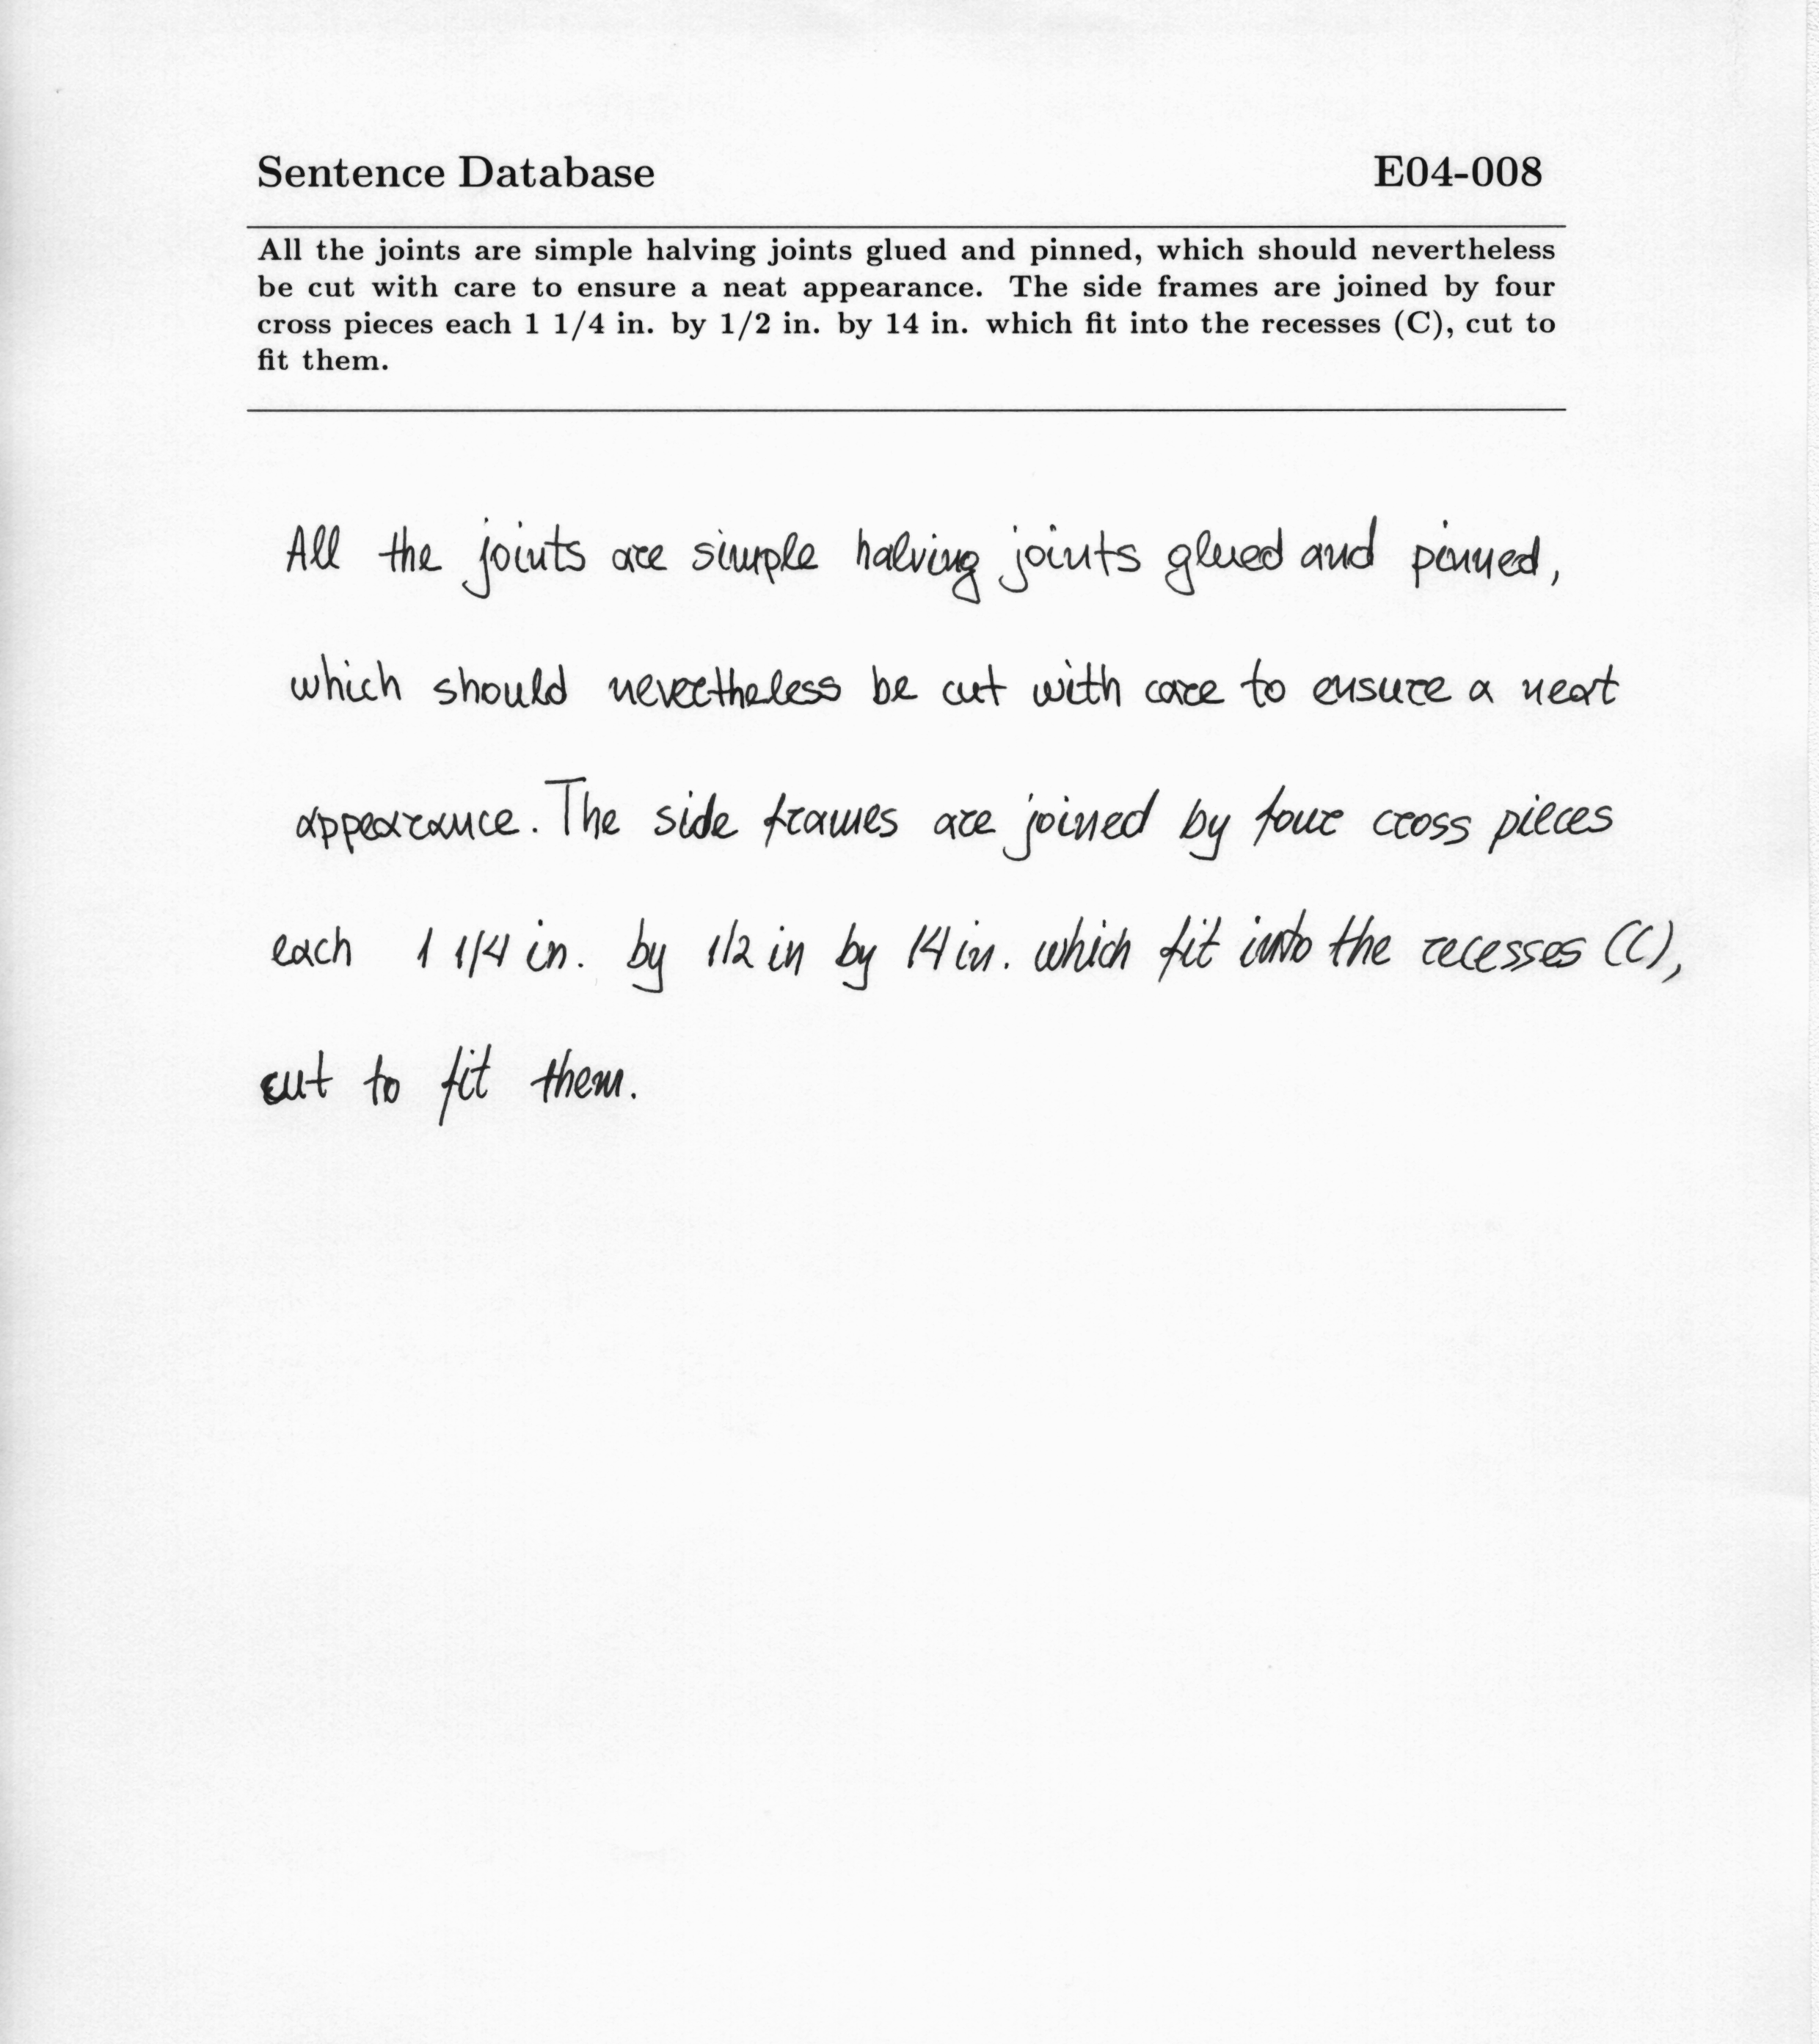 Sentence Database E04-008
All the joints are simple halving joints glued and pinned, which should nevertheless
be cut with care to ensure a neat appearance. The side frames are joined by four
cross pieces each 1 1/4 in. by 1/2 in. by 14 in. which fit into the recesses (C), cut to
fit them.
All the joints are simple halving joints glued and pinned,
which should nevertheless be cut with care to ensure a neat
appearance. The side frames are joined by four cross pieces
each 1 1/4 in. by 1/2 in by 14 in. which fit into the recesses (C),
cut to fit them.